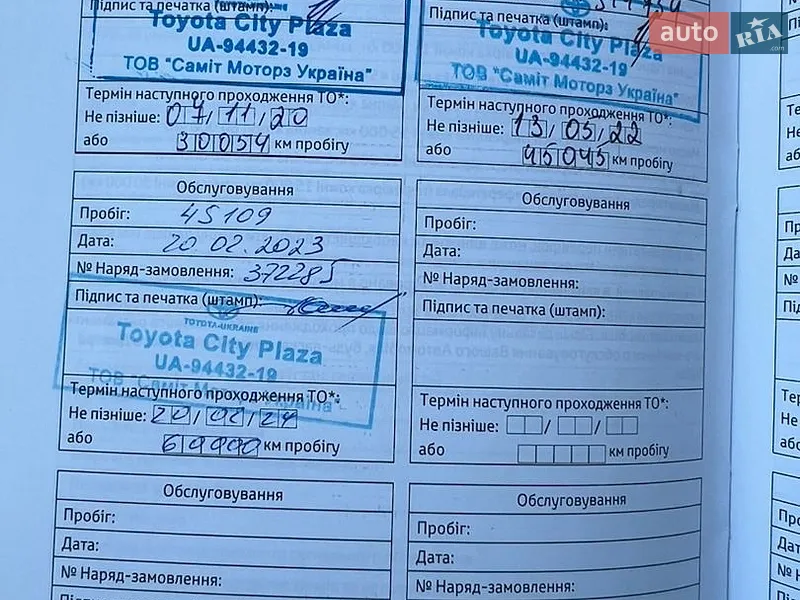 Підпис та печатка (штамп):
Toyota City Plaza
UA-94432-19
ТОВ "Саміт Моторз Україна"
Термін наступного проходження ТО*:
Не пізніше: 07/11/20
або 30054 км пробігу
Підпис та печатка (штамп):
Toyota City Plaza
UA-94432-19
ТОВ "Саміт Моторз Україна"
Термін наступного проходження ТО*:
Не пізніше: 13/05/22
або 45045 км пробігу
auto RIA .com
Обслуговування
Пробіг: 45109
Дата: 20 02. 2023
№ Наряд-замовлення: 372285
Підпис та печатка (штамп):
TOYOTA-UKRAINE
Toyota City Plaza
UA-94432-19
Термін наступного проходження ТО*:
Не пізніше: 20/02/24
або км пробігу
Обслуговування
Пробіг:
Дата:
№ Наряд-замовлення:
Підпис та печатка (штамп):
Термін наступного проходження ТО*:
Не пізніше: / /
або км пробігу
Обслуговування
Пробіг:
Дата:
№ Наряд-замовлення:
Обслуговування
Пробіг:
Дата:
№ Наряд-замовлення: